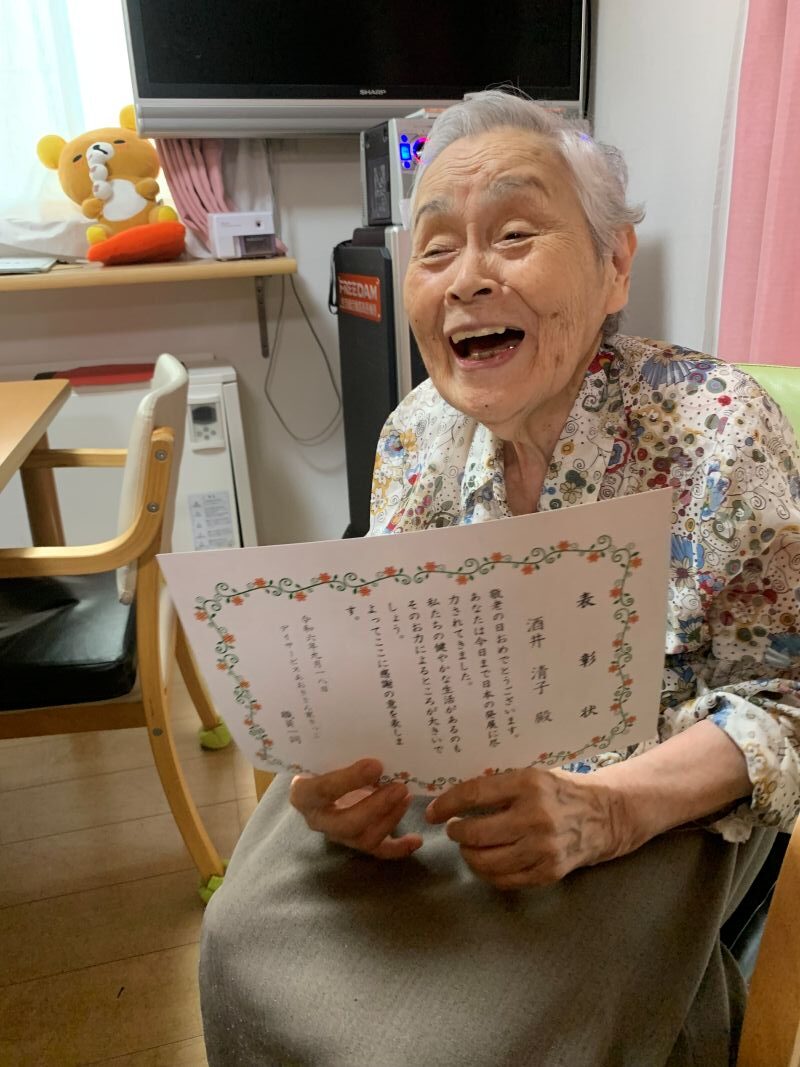 SHARP
FREEDAM
表彰状
酒井 清子 殿
敬老の日おめでとうございます。
あなたは今日まで日本の発展に尽
力されてきました。
私たちの健やかな生活があるのも
そのお力によるところが大きいで
しょう。
よってここに感謝の意を表しま
す。
令和六年九月一八日
職員一同